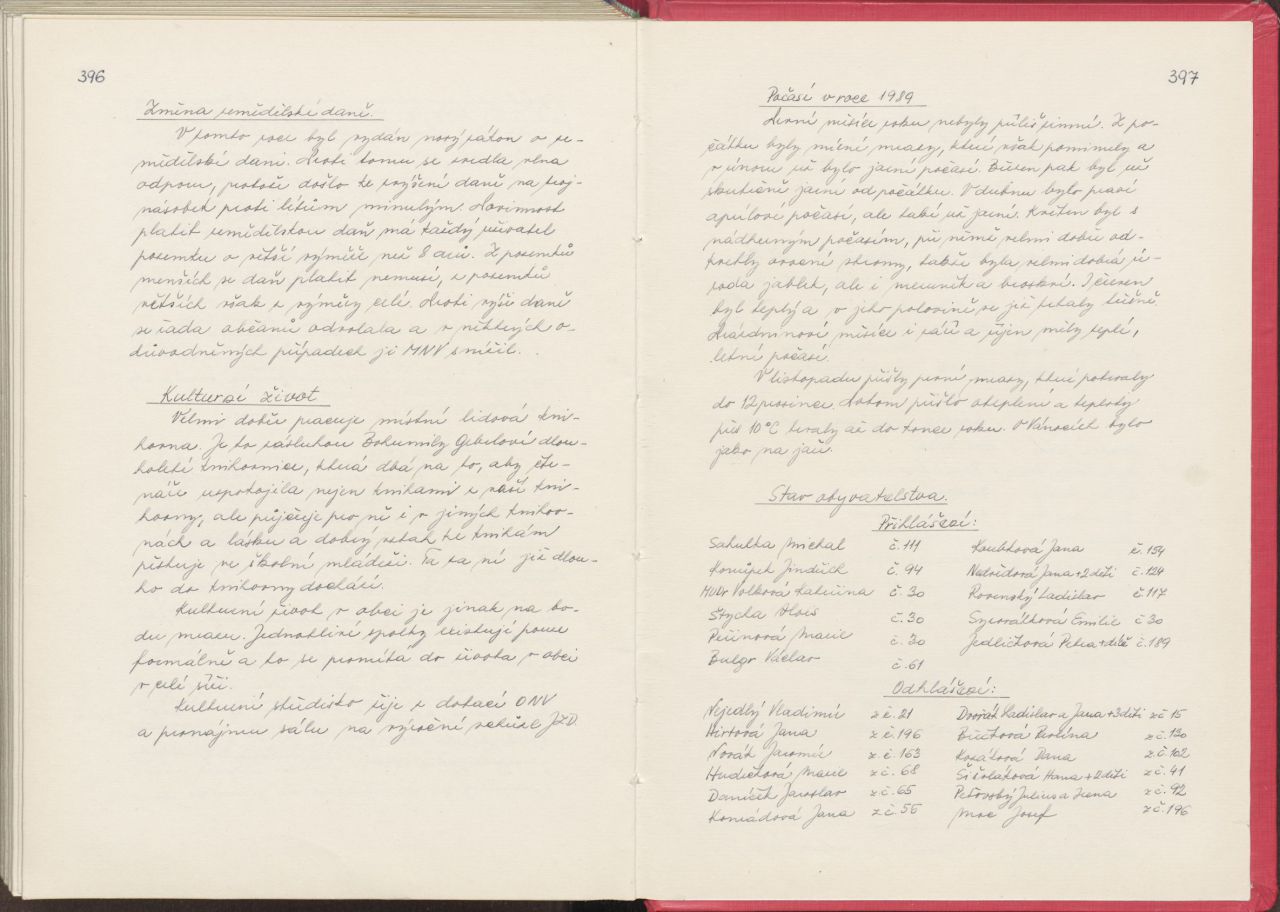 396
Změna zemědělské daně.
V tomto roce byl vydán nový zákon o ze-
mědělské dani. Proti tomu se zvedla vlna
odporu, protože došlo ke zvýšení daně na troj-
násobek proti létům minulým. Povinnost
platit zemědělskou daň má každý uživatel
pozemku o větší výměře než 8 arů. Z pozemků
menších se daň platit nemusí, z pozemků
větších však z výměry celé. Proti výši daně
se řada občanů odvolala a v některých o-
důvodněných případech ji MNV snížil.
Kulturní život
Velmi dobře pracuje místní lidová kni-
hovna. Je to zásluhou Bohumily Gebelové dlou-
holeté knihovnice, která dbá na to, aby čte-
náře uspokojila nejen knihami z naší kni-
hovny, ale půjčuje pro ně i v jiných knihov-
nách a lásku a dobrý vztah ke knihám
pěstuje ve školní mládeži. Ta za ní již dlou-
ho do knihovny dochází.
Kulturní život v obci je jinak na bo-
du mrazu. Jednotlivé spolky existují pouze
formálně a to se promítá do života v obci
v celé šíři.
Kulturní středisko žije z dotací ONV
a pronájmu sálu na výroční schůze JZD.
397
Počasí v roce 1989
První měsíce roku nebyly příliš zimní. Z po-
čátku byly mírné mrazy, které však pominuly a
v únoru už bylo jarní počasí. Březen pak byl už
skutečně jarní od počátku. V dubnu bylo pravé
aprílové počasí, ale také už jarní. Květen byl s
nádherným počasím, při němž velmi dobře od-
kvetly ovocné stromy, takže byla velmi dobrá ú-
roda jablek, ale i meruněk a broskví. I červen
byl teplý a v jeho polovině se již trhaly třešně.
Prázdninové měsíce i září a říjen měly teplé,
letní počasí.
V listopadu přišly první mrazy, které potrvaly
do 12 prosince. Potom přišlo oteplení a teploty
přes 10°C trvaly až do konce roku. O Vánocích bylo
jako na jaře.
Stav obyvatelstva.
Přihlášení:
Sakulta Michal č. 111 Koubková Jana č. 154
Konůpek Jindřich č. 94 Nedvědová Jana + 2 děti č. 124
MUDr Volková Kateřina č. 30 Rovenský Ladislav č. 117
Stycha Alois č. 30 Syrovátková Emilie č 30
Pečinová Marie č. 30 Jedličková Petra + dítě č. 189
Bulgr Václav č. 61
Odhlášení:
Nejedlý Vladimír z č. 21 Dvořák Ladislav a Jana + 3 děti z č 15
Hirtová Jana z č. 196 z č. 130
Novák Jaromír z č. 163 Kozáková Dana z č. 102
Hudičková Marie z č. 68 Šišoláková Hana + 2 děti z č. 41
Daníček Jaroslav z č. 65 Peťovský Julius a Irena z č. 92
Konrádová Jana z č. 55 Mrac Josef z č. 196